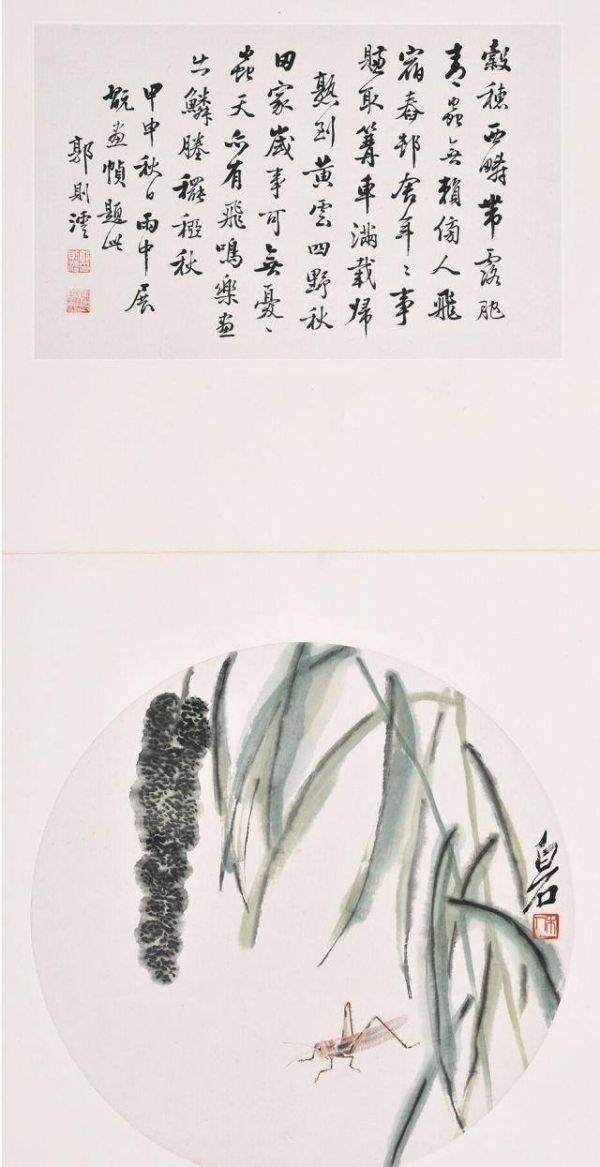 穀穗西疇帶露肥
青蟲無賴傍人飛
宿舂邨舍年〻事
賸取篝車滿載歸
熟到黃雲四野秋
田家歲事可無憂
蟲天亦有飛鳴樂畫
出鱗塍䆉稏秋
甲申秋日雨中展
翫畫幀題此
郭則澐
白石
木人